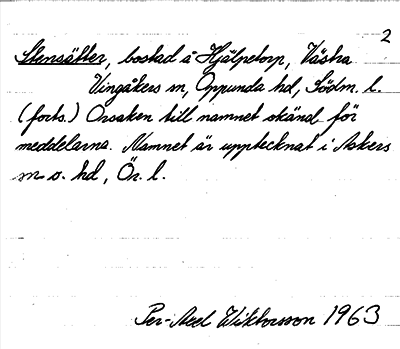 2
Stensätter, bostad å Hjälpetorp, Västra
Vingåkers sn, Oppunda hd, Södm. l.
(forts.) Orsaken till namnet okänd för
meddelarna. Namnet är upptecknat i Askers
sn o. hd, Ör. l.
Per-Axel Wiktorsson 1963